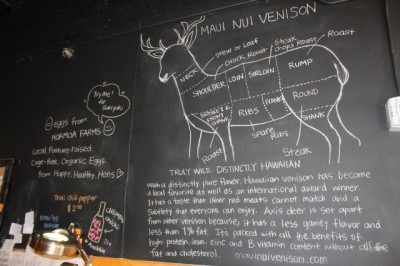 MAUI NUI VENISON
Stew or Loaf
Chuck Roast
Steak
Chops Roast
Roast
Roast
NECK
SHOULDER
LOIN
SIRLOIN
RUMP
RIBS
FLANK
ROUND
SHANK
BRISKET &
SHANK
Spare
Ribs
Roast
Steak
Try me! for
Sukiyaki
EGGS from
HOAMOA FARMS
Local Pasture-Raised
Cage-free, Organic Eggs
from Happy, Healthy Hens
Thai chili pepper
$2.00
TRULY WILD. DISTINCTLY HAWAIIAN
With a distinctly pure flavor, Hawaiian venison has become
a local favorite as well as an international award winner.
It has a taste that other red meats cannot match and a
subtlety that everyone can enjoy. Axis deer is set apart
from other venison because it has a less gamey flavor and
less than 1% fat. It's packed with all the benefits of
high protein, iron, zinc and B vitamin content without all the
fat and cholesterol. mauinuivenison.com